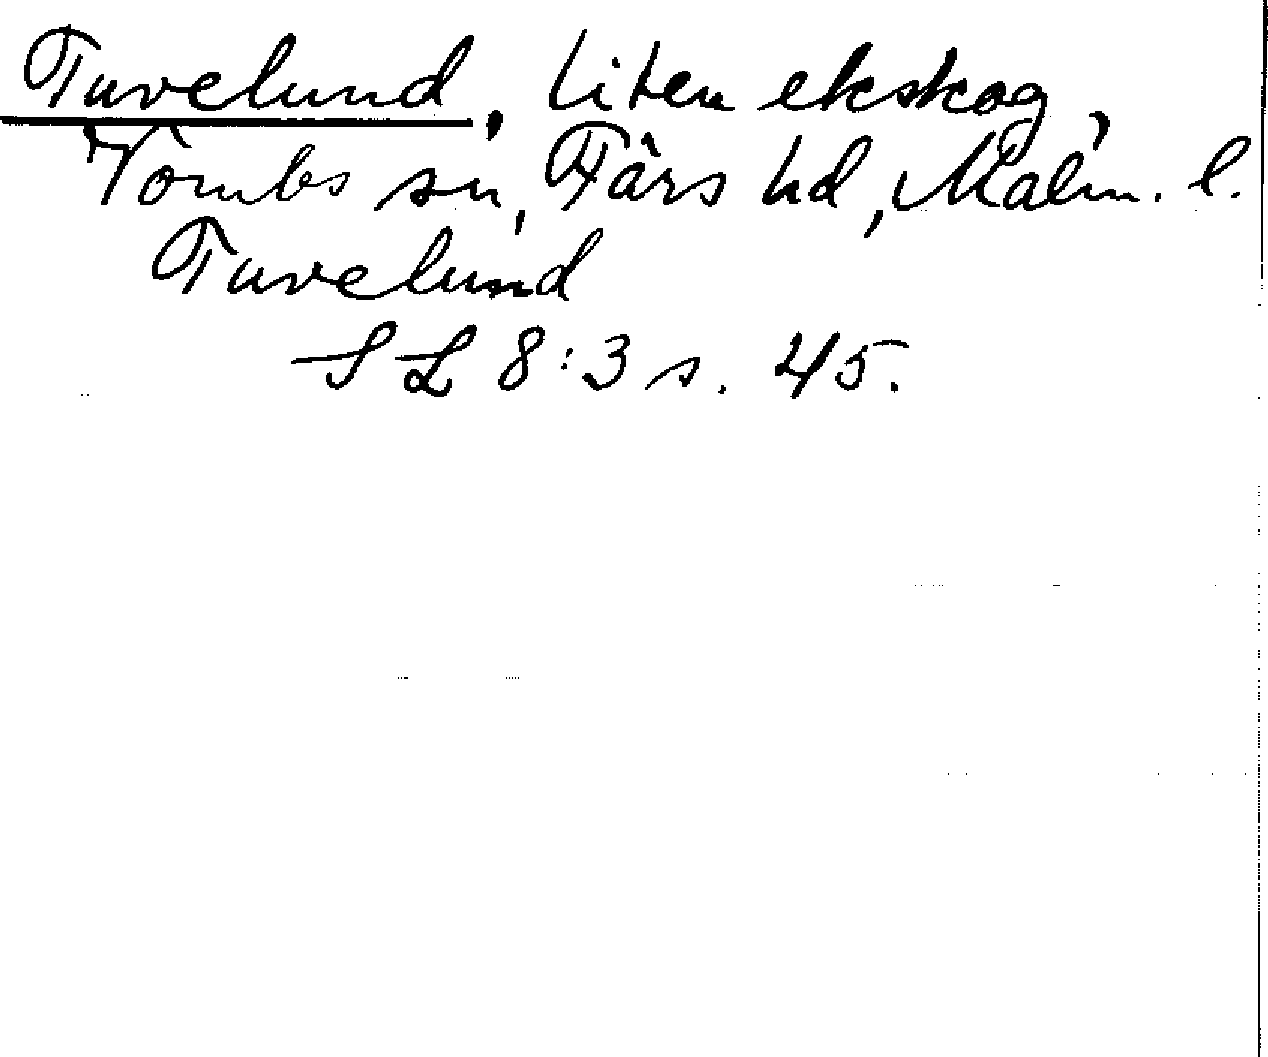 Tuvelund, liten ekskog,
Vombs sn, Färs hd, Malm. l.
Tuvelund
SL 8:3 s. 45.